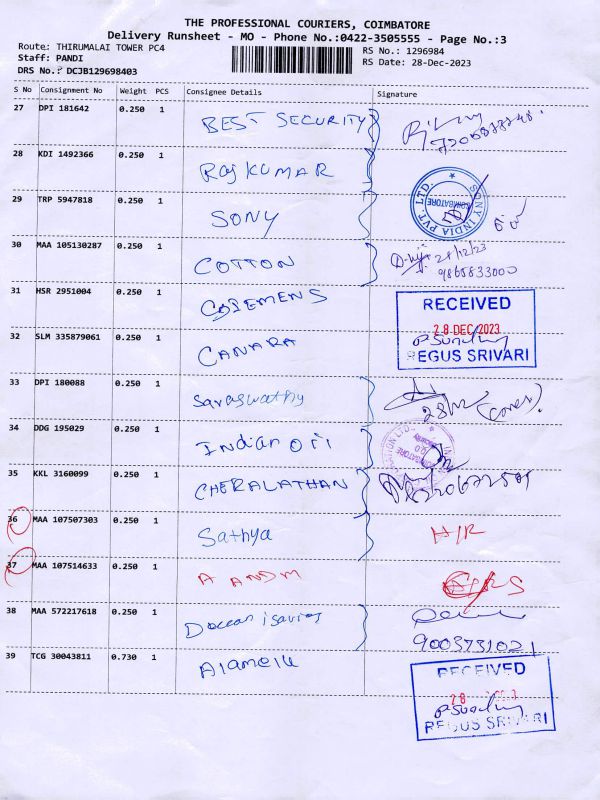 THE PROFESSIONAL COURIERS, COIMBATORE
Delivery Runsheet - MO - Phone No.:0422-3505555 - Page No.:3
Route: THIRUMALAI TOWER PC4
RS No.: 1296984
Staff: PANDI
RS Date: 28-Dec-2023
DRS No.: DCJB129698403
S No Consignment No Weight PCS Consignee Details Signature
27 DPI 181642 0.250 1 BEST SECURITY
28 KDI 1492366 0.250 1 RAJKUMAR
29 TRP 5947818 0.250 1 SONY
SONY INDIA PVT. LTD.
COIMBATORE
30 MAA 105130287 0.250 1 COTTON 28/12/23
9865833000
31 HSR 2951004 0.250 1
RECEIVED
28 DEC 2023
REGUS SRIVARI
32 SLM 335879061 0.250 1 CANARA
33 DPI 180088 0.250 1 Saraswathy
34 DDG 195029 0.250 1 Indian
35 KKL 3160099 0.250 1 CHERALATHAN
36 MAA 107507303 0.250 1 Sathya
37 MAA 107514633 0.250 1 A ANDM
38 MAA 572217618 0.250 1
39 TCG 30043811 0.730 1 Alamelu
RECEIVED
28
REGUS SRIVARI